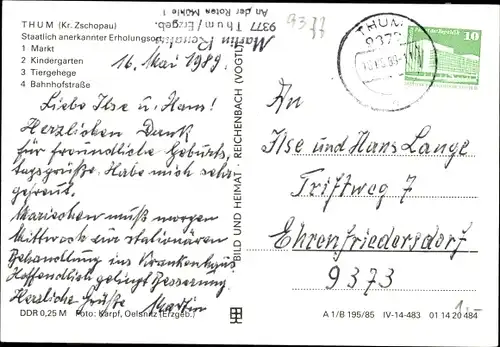 THUM (Kr. Zschopau)
Staatlich anerkannter Erholungsort
1 Markt
2 Kindergarten
3 Tiergehege
4 Bahnhofstraße
An der Roten Mühle 1
9377 Thum/Erzgeb.
Martin
9377
16. Mai 1989.
Liebe Ilse u. Hans!
Herzlichen Dank
für freundliche Geburts,
tagsgrüße. Habe mich sehr
gefreut.
Mariechen muß morgen
Mittwoch zur stationären
Behandlung ins Krankenhaus
Hoffentlich gelingt Besserung.
Herzliche Grüße
Martin
DDR 0,25 M Foto: Karpf, Oelsnitz (Erzgeb.)
BILD UND HEIMAT · REICHENBACH (VOGTL)
THUM
9377
10
An
Ilse und Hans Lange
Triftweg 7
Ehrenfriedersdorf
9373
1,-
A 1/B 195/85 IV-14-483 01 14 20 484